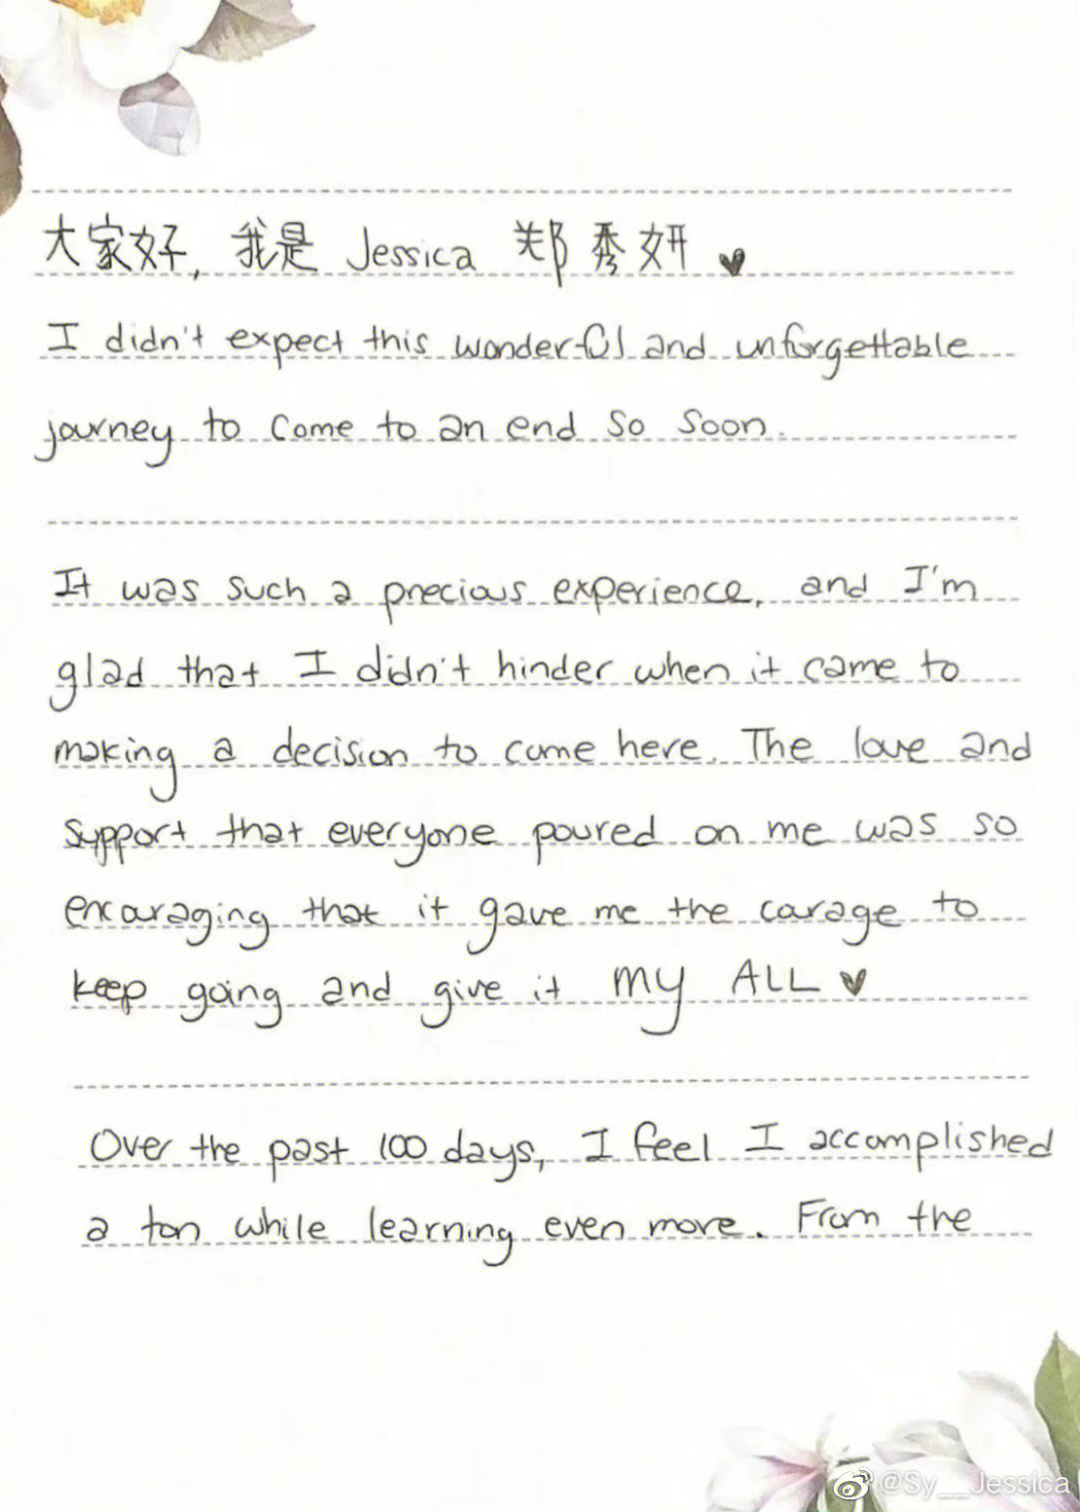 大家好, 我是 Jessica 郑秀妍 ♥
I didn't expect this wonderful and unforgettable
journey to come to an end so soon.
It was such a precious experience, and I'm
glad that I didn't hinder when it came to
making a decision to come here. The love and
support that everyone poured on me was so
encouraging that it gave me the courage to
keep going and give it my ALL ♥
Over the past 100 days, I feel I accomplished
a ton while learning even more. From the
@Sy__Jessica